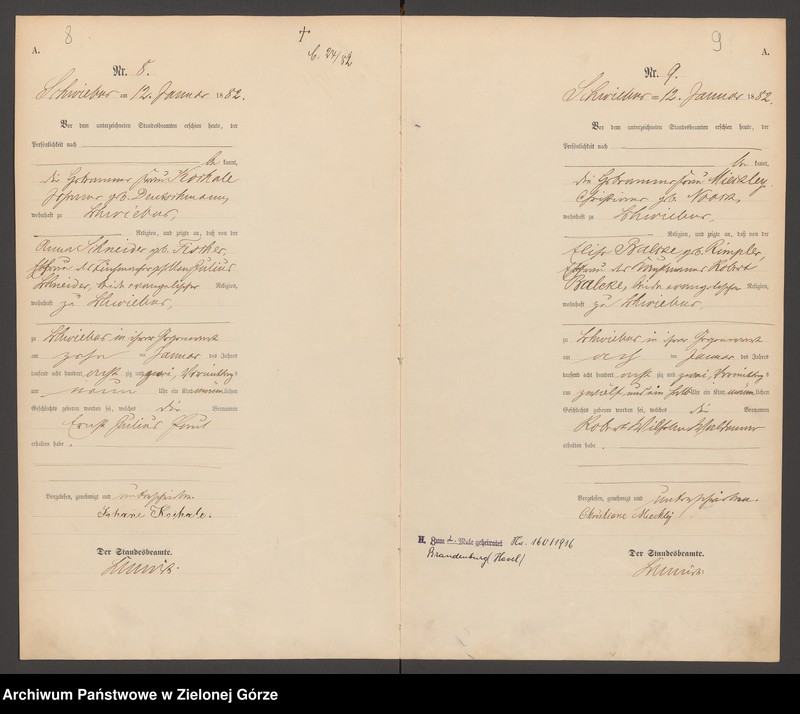 8
†
C. 24/82
A.
Nr. 8.
Schwiebus am 12. Januar 1882.
Vor dem unterzeichneten Standesbeamten erschien heute, der
Persönlichkeit nach
be kannt,
die Hebamme Frau Koschale
Johanne geb.
wohnhaft zu Schwiebus,
Religion, und zeigte an, daß von der
Anna Schneider geb. Fischer,
Ehefrau des Julius
Schneider, beide evangelischer Religion,
wohnhaft zu Schwiebus,
zu Schwiebus in ihrer Gegenwart
am zehn ten Januar des Jahres
tausend acht hundert acht zig und zwei, Vormittags
um neun Uhr ein Kind männlichen
Geschlechts geboren worden sei, welches die Vornamen
Ernst Julius Paul
erhalten habe.
Vorgelesen, genehmigt und unterschrieben.
Johane Koschale.
Der Standesbeamte.
9
A.
Nr. 9.
Schwiebus am 12. Januar 1882.
Vor dem unterzeichneten Standesbeamten erschien heute, der
Persönlichkeit nach
be kannt,
die Hebamme Frau
Christiane geb. Noack,
wohnhaft zu Schwiebus,
Religion, und zeigte an, daß von der
Elise Balcke geb. Rimpler,
Ehefrau des Kaufmanns Robert
Balcke, beide evangelischer Religion,
wohnhaft zu Schwiebus,
zu Schwiebus in ihrer Gegenwart
am acht ten Januar des Jahres
tausend acht hundert acht zig und zwei, Vormittags
um zwölf und ein halb Uhr ein Kind männlichen
Geschlechts geboren worden sei, welches die Vornamen
Robert Wilhelm Waldemar
erhalten habe.
Vorgelesen, genehmigt und unterschrieben.
Christiane
H. Zum 2. Male geheiratet Nr. 160/1916
Brandenburg (Havel)
Der Standesbeamte.
Archiwum Państwowe w Zielonej Górze